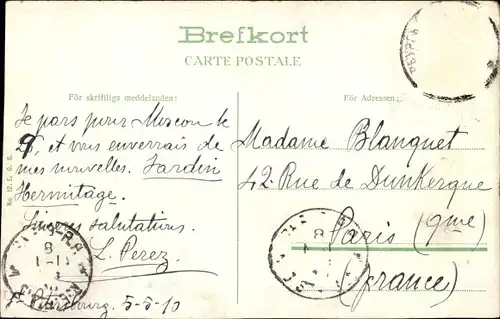 Brefkort
CARTE POSTALE
För skriftliga meddelanden:
För Adressen:
Je pars pour Moscou le
28, et vous enverrais de
mes nouvelles. Jardin
Hermitage.
Sinceres salutations
L. Perez
St Petersbourg 5-5-10
Madame Blanquet
42. Rue de Dunkerque
Paris (9me)
(france)